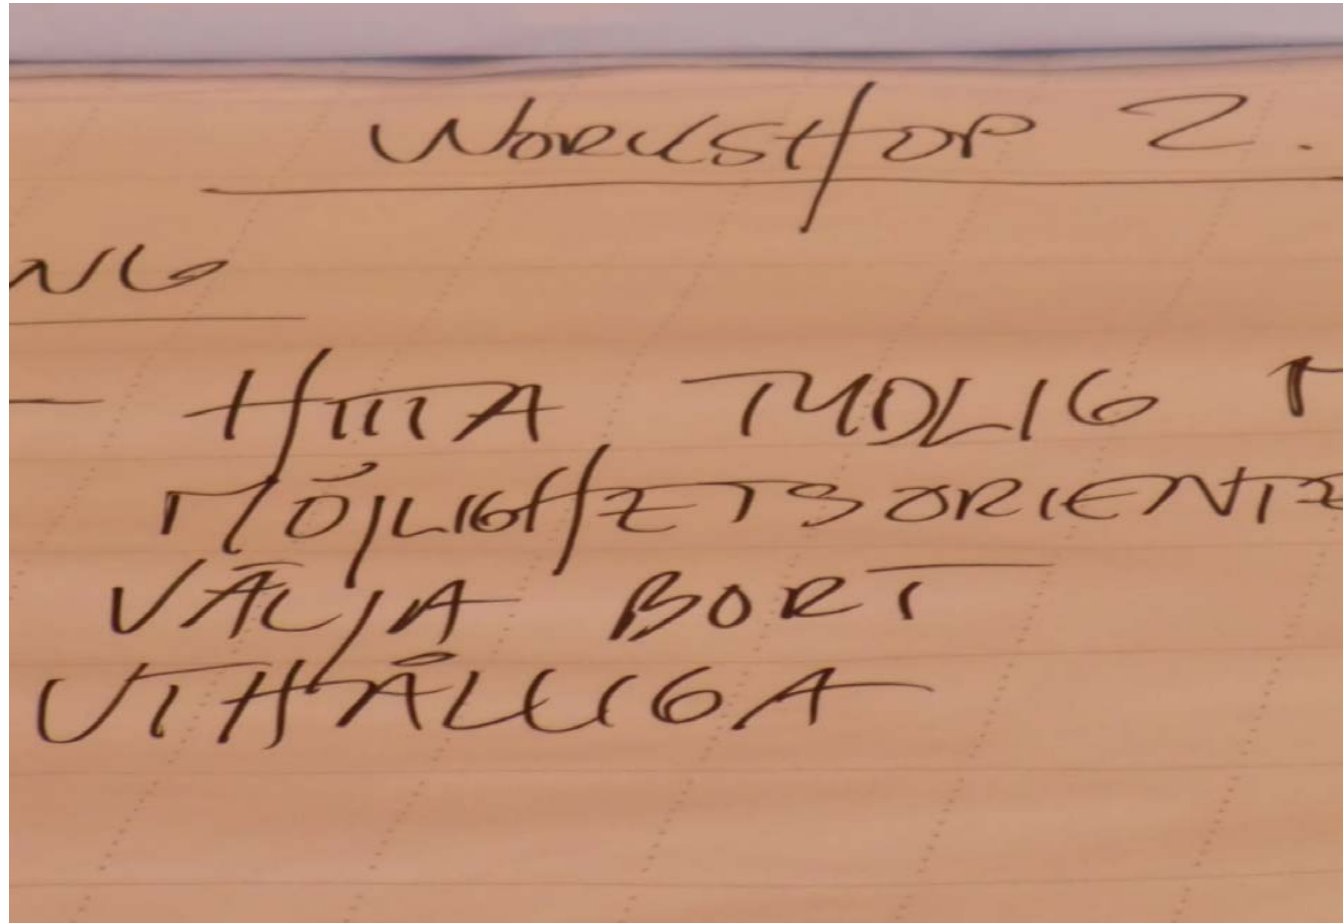 WORKSHOP 2.
NG
- HITTA TYDLIG
MÖJLIGHETSORIENTE
VÄLJA BORT
UTHÅLLIGA